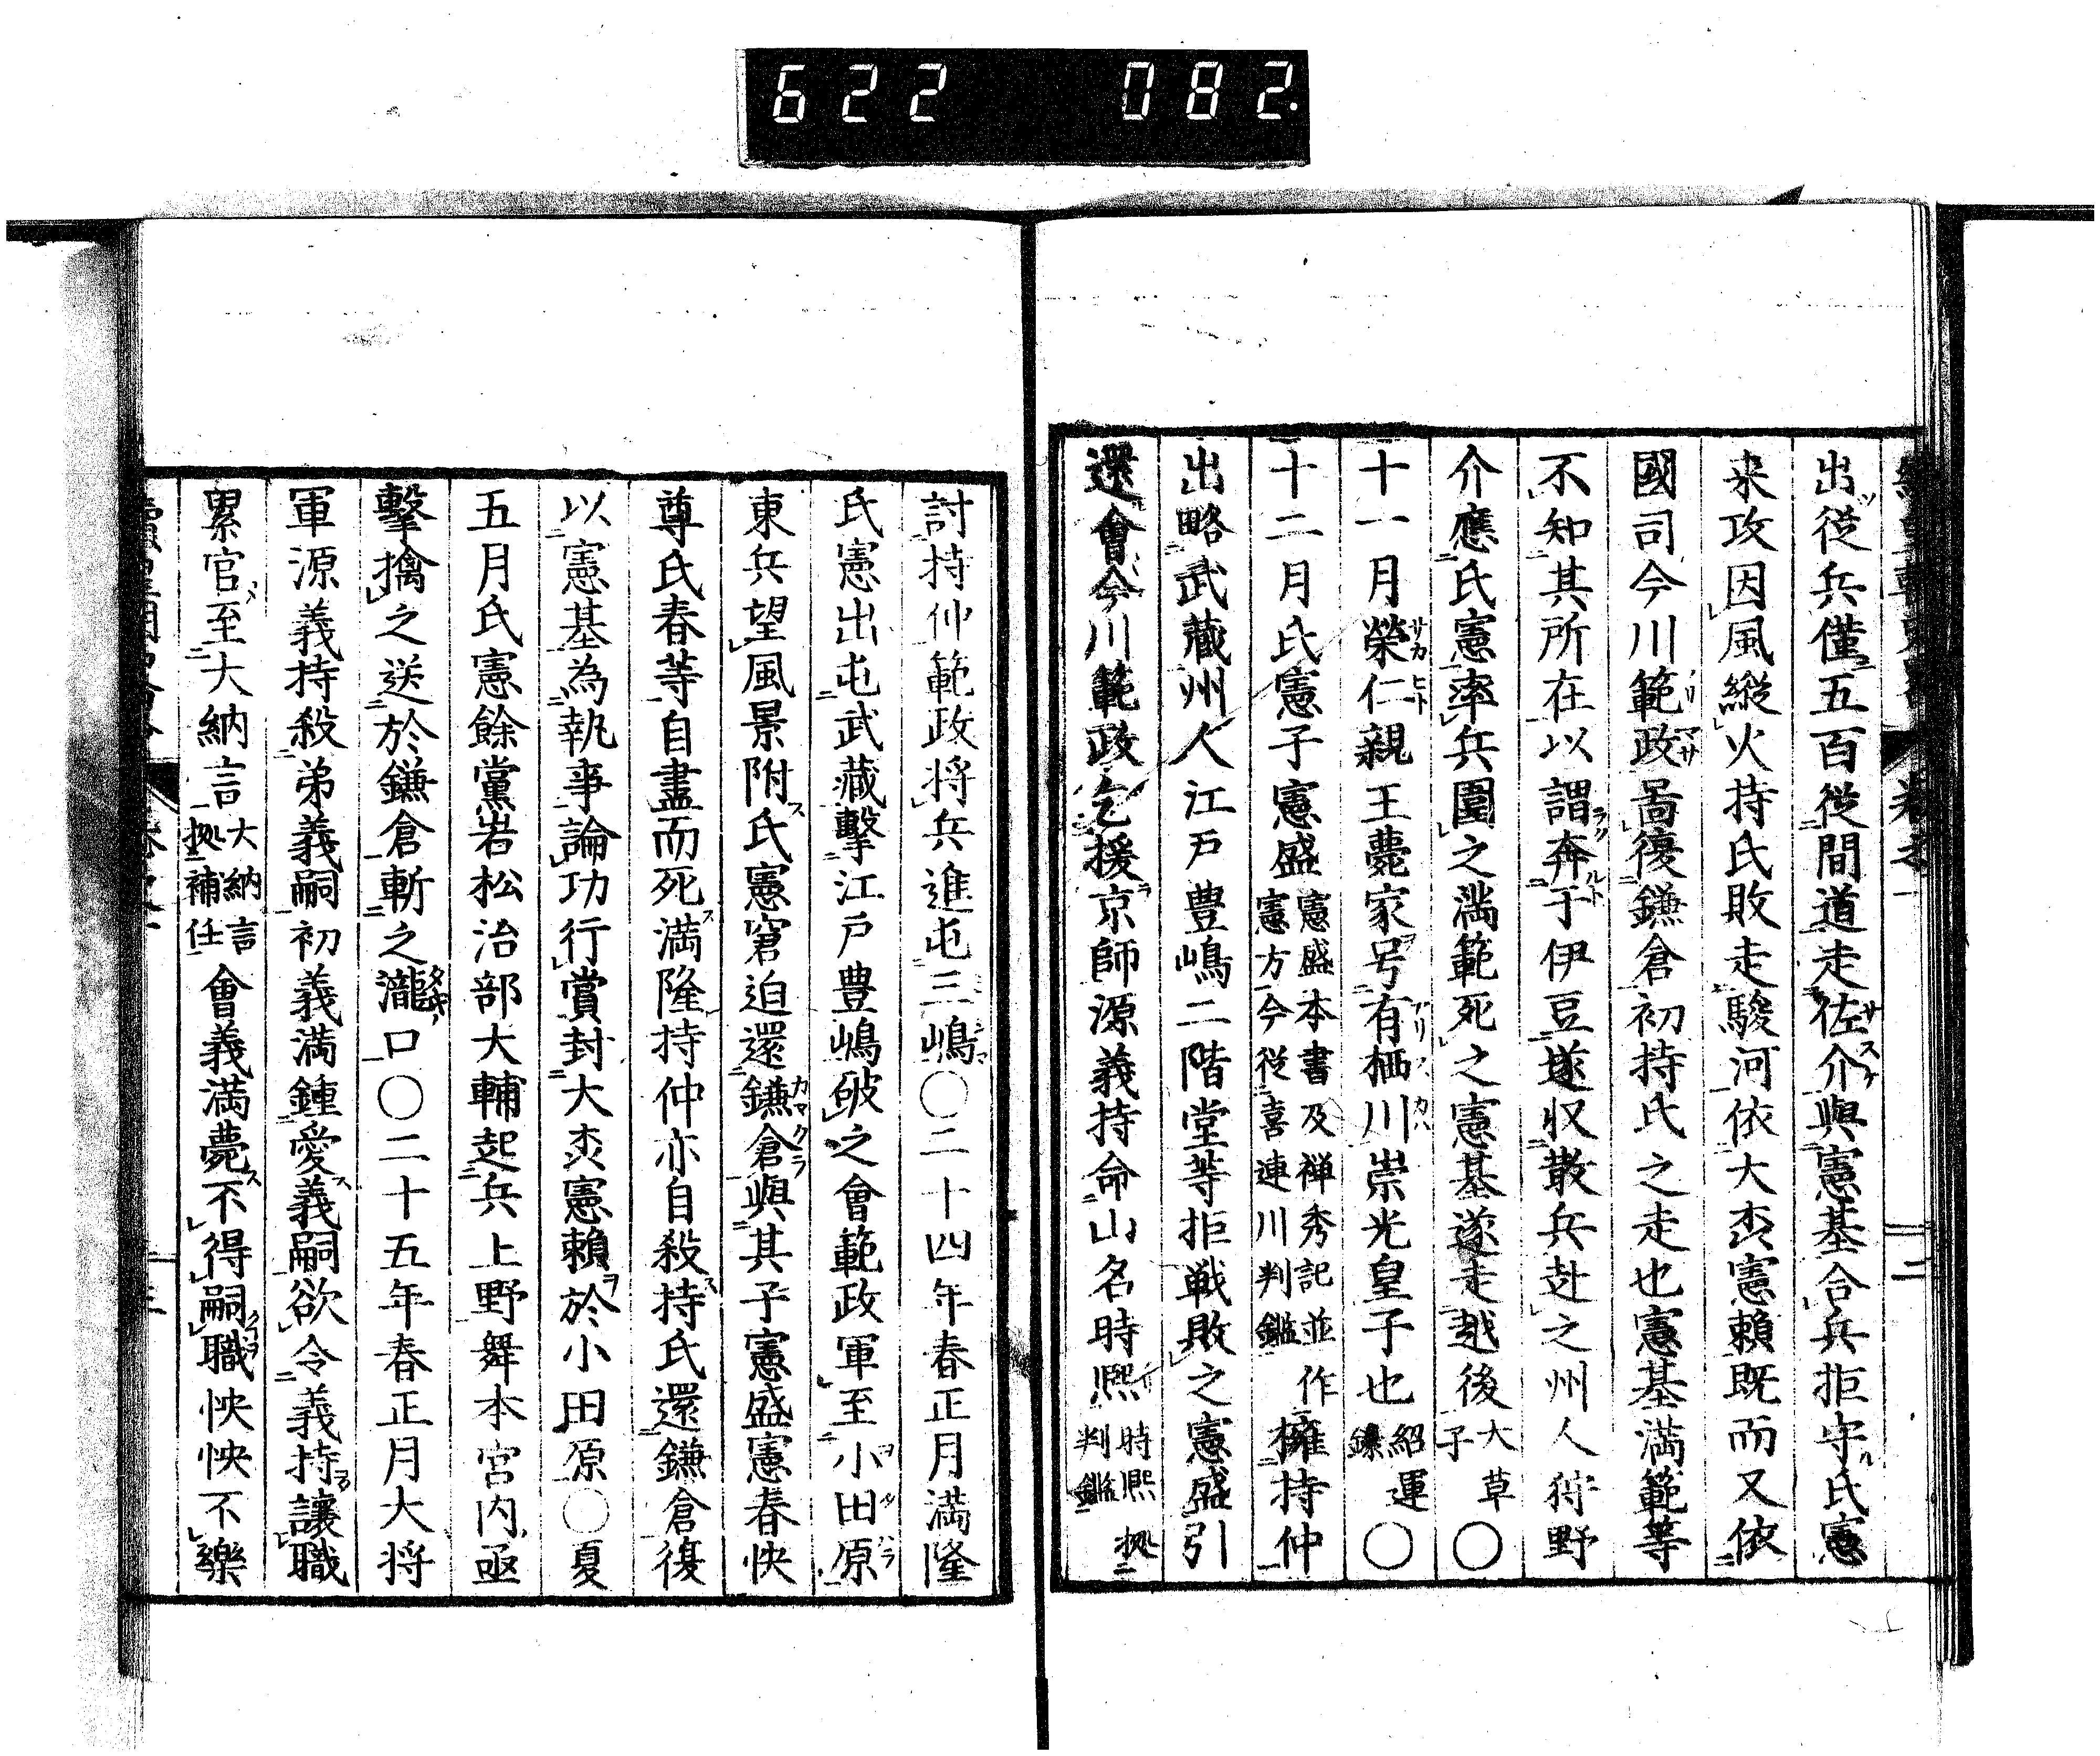 622 082.
出従兵僅五百従間道走佐介與憲基合兵拒守氏憲
来攻因風縦火持氏敗走駿河依大森憲頼既而又依
國司今川範政啚復鎌倉初持氏之走也憲基満範等
不知其所在以謂奔于伊豆遂収散兵赴之州人狩野
介應氏憲率兵圍之満範死之憲基遂走越後大草子〇
十一月榮仁親王薨家号有栖川崇光皇子也紹運録〇
十二月氏憲子憲盛憲盛本書及禅秀記並作憲方今従喜連川判鑑擁持仲
出略武藏州人江戸豊嶋二階堂等拒戦敗之憲盛引
還會今川範政乞援京師源義持命山名時熈時熈拠判鑑
討持仲範政将兵進屯三嶋〇二十四年春正月満隆
氏憲出屯武藏擊江戸豊嶋破之會範政軍至小田原
東兵望風景附氏憲窘迫還鎌倉與其子憲盛憲春快
尊氏春等自盡而死満隆持仲亦自殺持氏還鎌倉復
以憲基為執事論功行賞封大森憲頼於小田原〇夏
五月氏憲餘黨岩松治部大輔起兵上野舞本宮内亟
擊擒之送於鎌倉斬之瀧口〇二十五年春正月大将
軍源義持殺弟義嗣初義満鍾愛義嗣欲令義持讓職
累官至大納言大納言拠補任會義満薨不得嗣職怏怏不樂